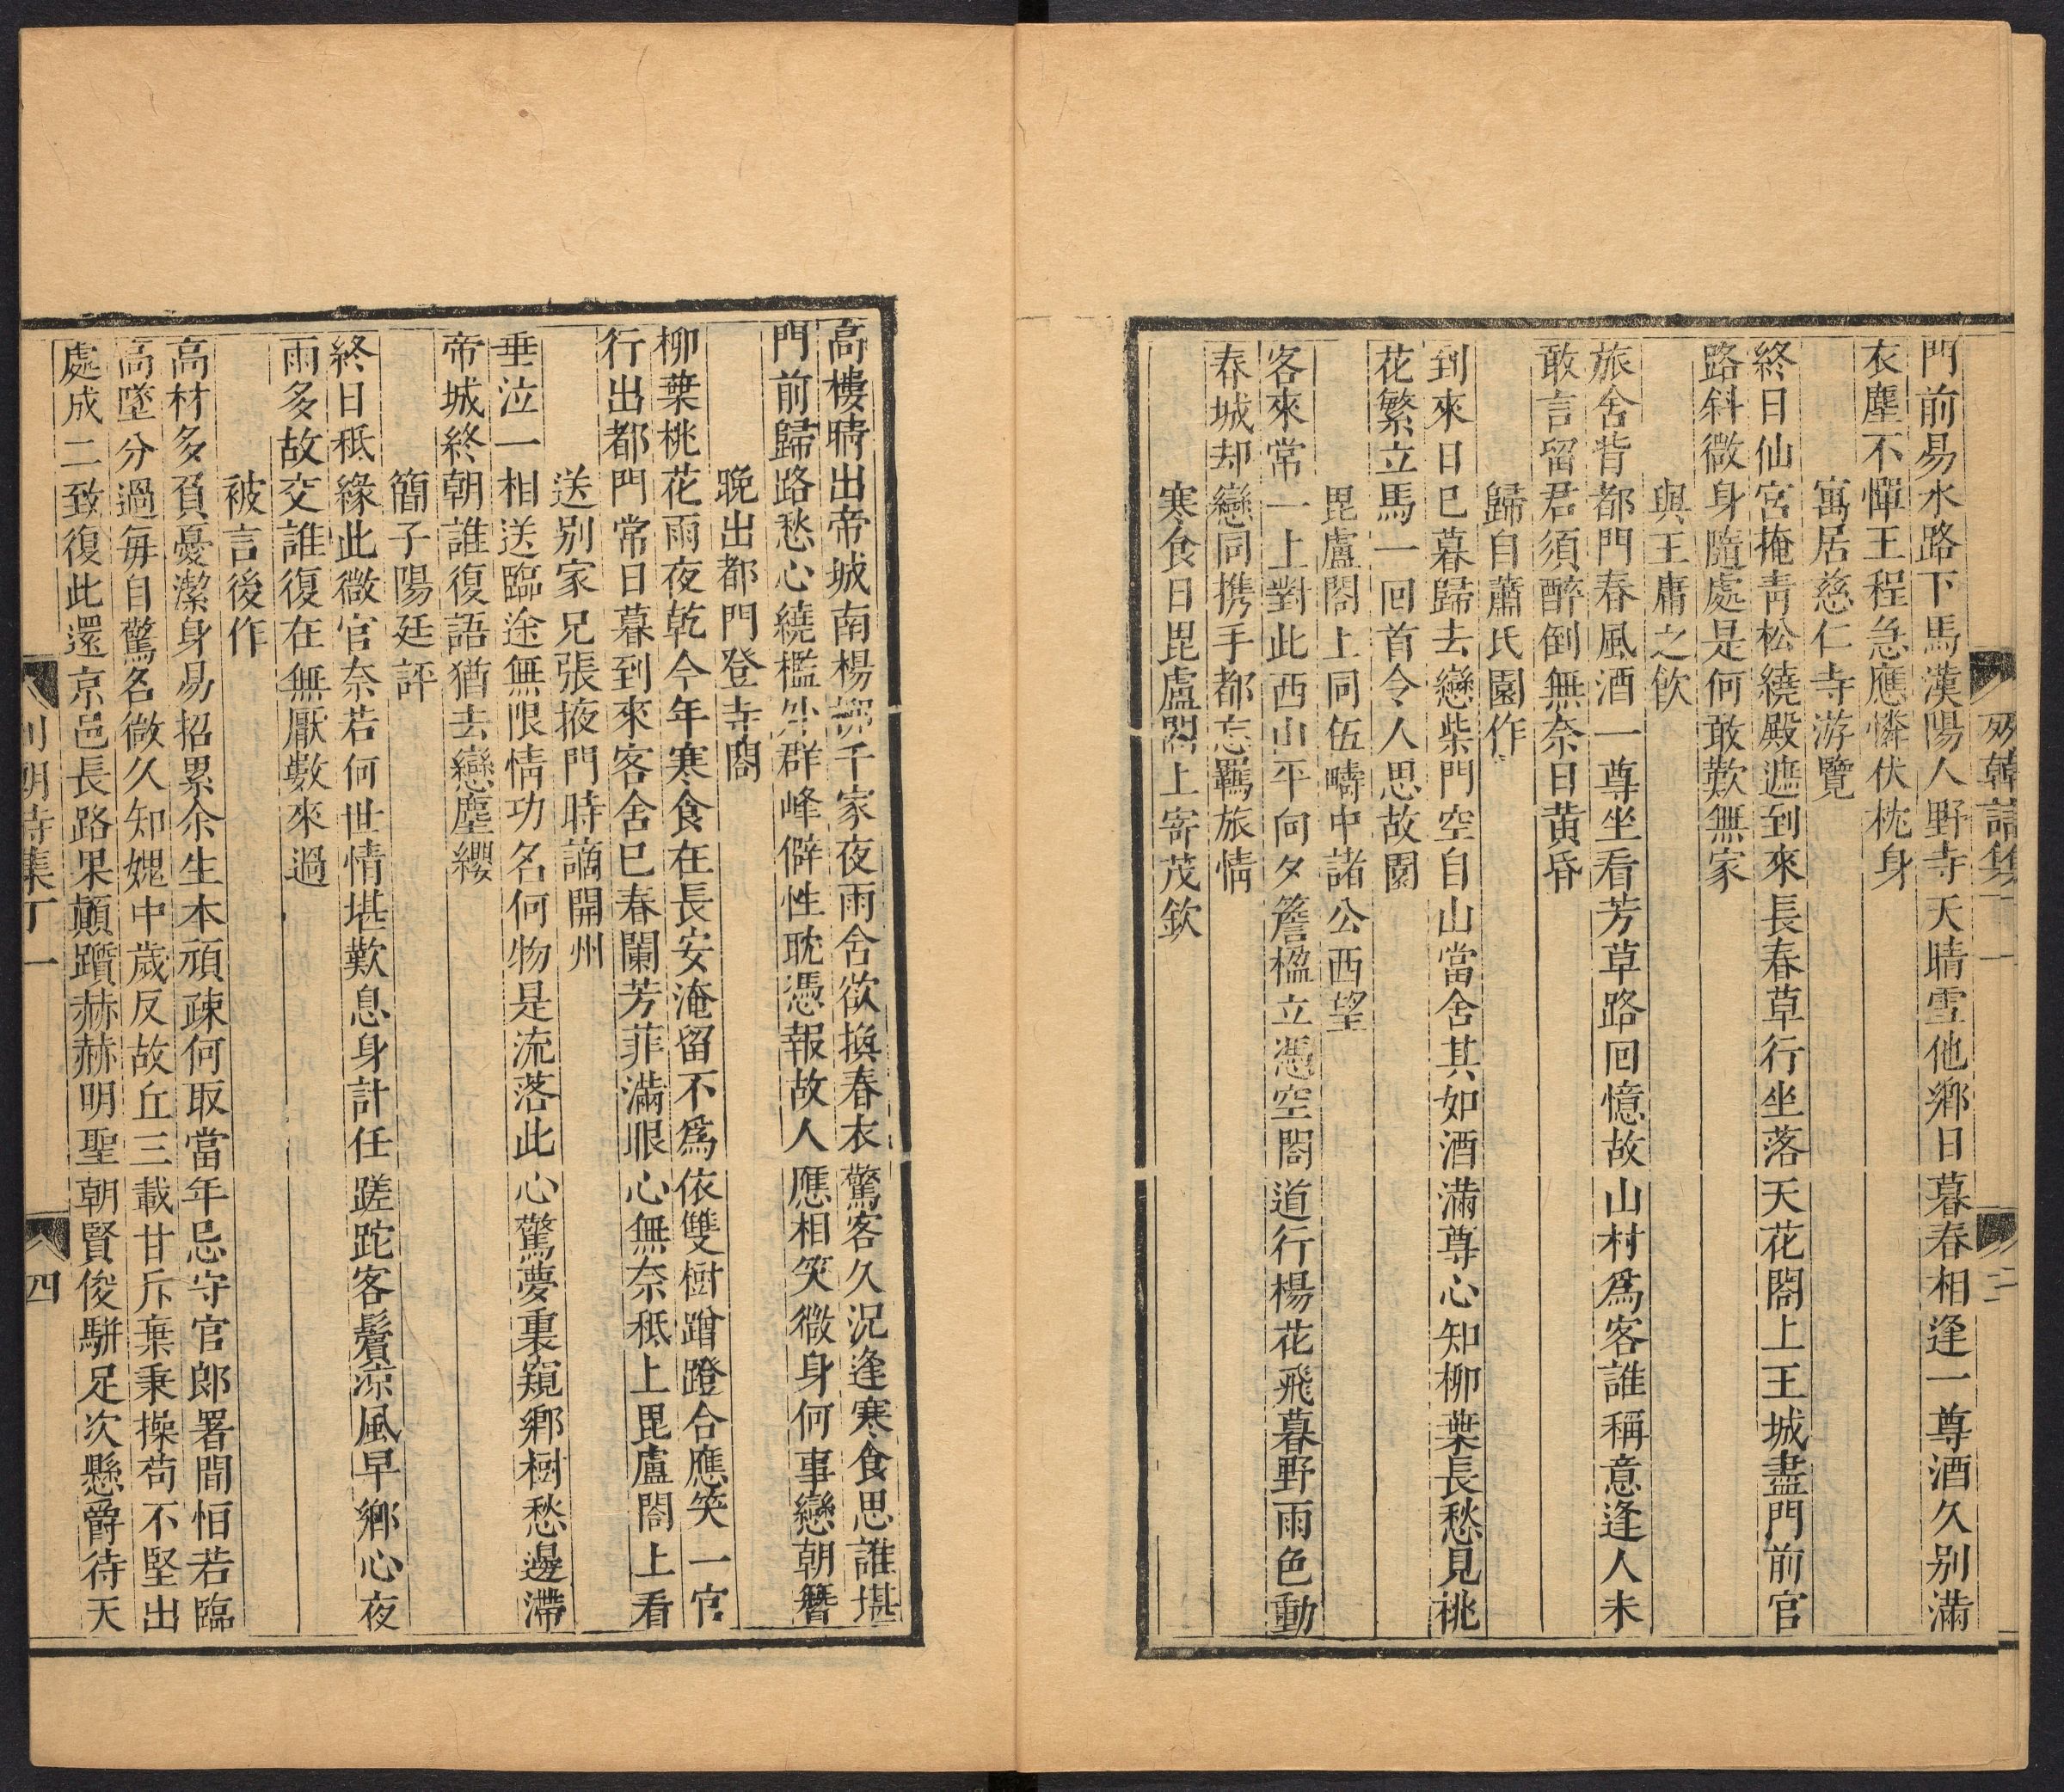 門前易水路下馬漢陽人野寺天晴雪他鄉日暮春相逢一尊酒久别滿
衣塵不憚王程急應憐伏枕身
寓居慈仁寺游覽
終日仙宮掩靑松繞殿遮到來長春草行坐落天花閣上王城盡門前官
路斜微身隨處是何敢歎無家
與王庸之飮
旅舍背都門春風酒一尊坐看芳草路回憶故山村爲客誰稱意逢人未
敢言留君須醉倒無奈日黄昏
歸自蕭氏園作
到來日巳暮歸去戀柴門空自山當舍其如酒滿尊心知柳葉長愁見桃
花繁立馬一回首令人思故園
毘盧閣上同伍疇中諸公西望
客來常一上對此西山平向夕簷楹立憑空閣道行楊花飛暮野雨色動
春城却戀同携手都忘羈旅情
寒食日毘盧閣上寄茂欽
高樓晴出帝城南楊柳千家夜雨含欲換春衣驚客久況逢寒食思誰堪
門前歸路愁心繞檻外群峰僻性耽憑報故人應相笑微身何事戀朝簪
晚出都門登寺閣
柳葉桃花雨夜乾今年寒食在長安淹留不爲依雙樹蹭蹬合應笑一官
行出都門常日暮到來客舍巳春闌芳菲滿眼心無奈秪上毘盧閣上看
送别家兄張掖門時謫開州
垂泣一相送臨途無限情功名何物是流落此心驚夢裏窺鄕樹愁邊滯
帝城終朝誰復語猶去戀塵纓
簡子陽廷評
終日秪緣此微官奈若何世情堪歎息身計任蹉跎客鬢凉風早鄕心夜
雨多故交誰復在無厭數來過
被言後作
高材多負憂潔身易招累余生本頑疎何取當年忌守官郎署間恒若臨
高墜分過每自驚名微久知娓中歲反故丘三載甘斥棄秉操苟不堅出
處成二致復此還京邑長路果顛躓赫赫明聖朝賢俊駢足次懸爵待天
朝詩集丁一
四